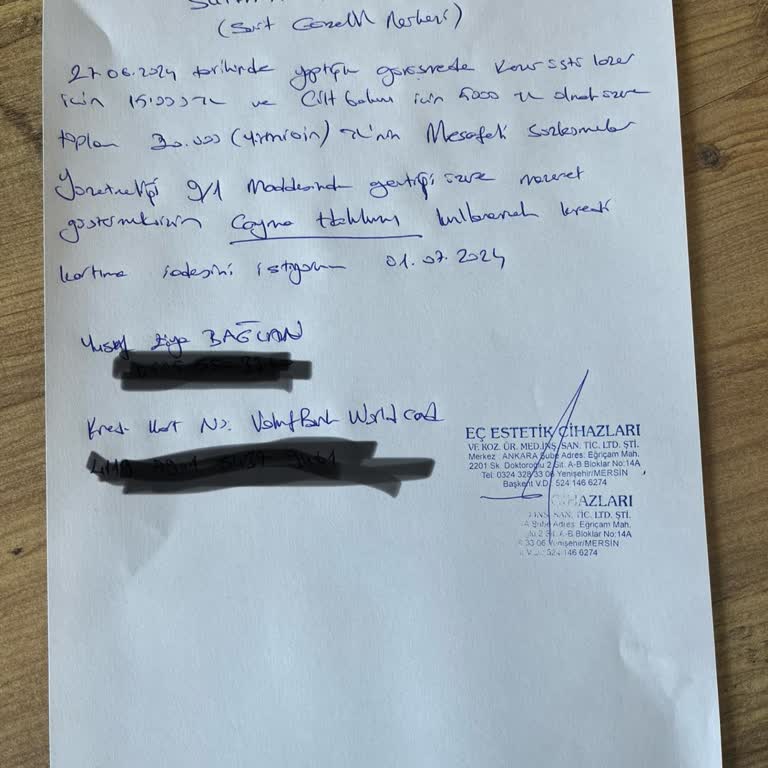 (Suit Güzellik Merkezi)
27.06.2024 tarihinde yaptığım görüşmede lazer
için 15.000 TL ve Cilt bakımı için 5000 TL olmak üzere
toplam 20.000 (yirmibin) TL'nin Mesafeli Sözleşmeler
Yönetmeliği 9/1 Maddesinde gectiği üzere mazeret
göstermeksizin Cayma Hakkımı kullanarak kredi
kartıma iadesini istiyorum 01.07.2024
Yusuf Ziya BAĞLAN
Kredi Kart No. VakıfBank World card
EÇ ESTETİK CİHAZLARI
VF. KOZ. ÜR. MED. İNŞ. SAN. TİC. LTD. ŞTİ.
Merkez : ANKARA Şube Adres: Eğriçam Mah.
2201 Sk. Doktoroğlu 2 Sit. A-B Bloklar No:14A
Tel: 0324 328 33 06 Yenişehir/MERSİN
Başkent V.D.: 524 146 6274
CİHAZLARI
SAN. TİC. LTD. ŞTİ.
Şube Adres: Eğriçam Mah.
2 Sit. A-B Bloklar No:14A
33 06 Yenişehir/MERSİN
524 146 6274